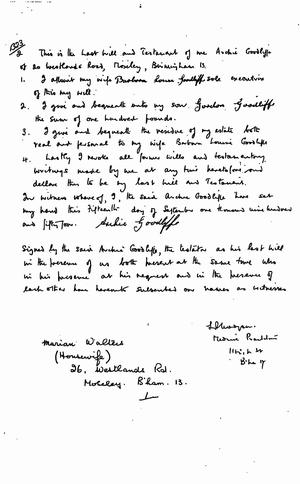 This is the Last Will and Testament of me Archie Goodliffe
of 20 Westlands Road, Moseley, Birmingham 13.
1. I appoint my wife Barbara Louise Goodliffe sole executrix
of this my will.
2. I give and bequeath unto my son Gordon Goodliffe
the sum of one hundred pounds.
3. I give and bequeath the residue of my estate both
real and personal to my wife Barbara Louise Goodliffe
4. Lastly I revoke all former wills and testamentary
writings made by me at any time heretofore and
declare this to be my last Will and Testament.
In witness whereof, I, the said Archie Goodliffe have set
my hand this Fifteenth day of September one thousand nine hundred
and fifty two. Archie Goodliffe
Signed by the said Archie Goodliffe, the testator as his last will
in the presence of us both present at the same time who
in his presence at his request and in the presence of
each other have hereunto subscribed our names as witnesses
Marian Walters
(Housewife)
26, Westlands Rd.
Moseley. B'ham. 13.
B'ham 17